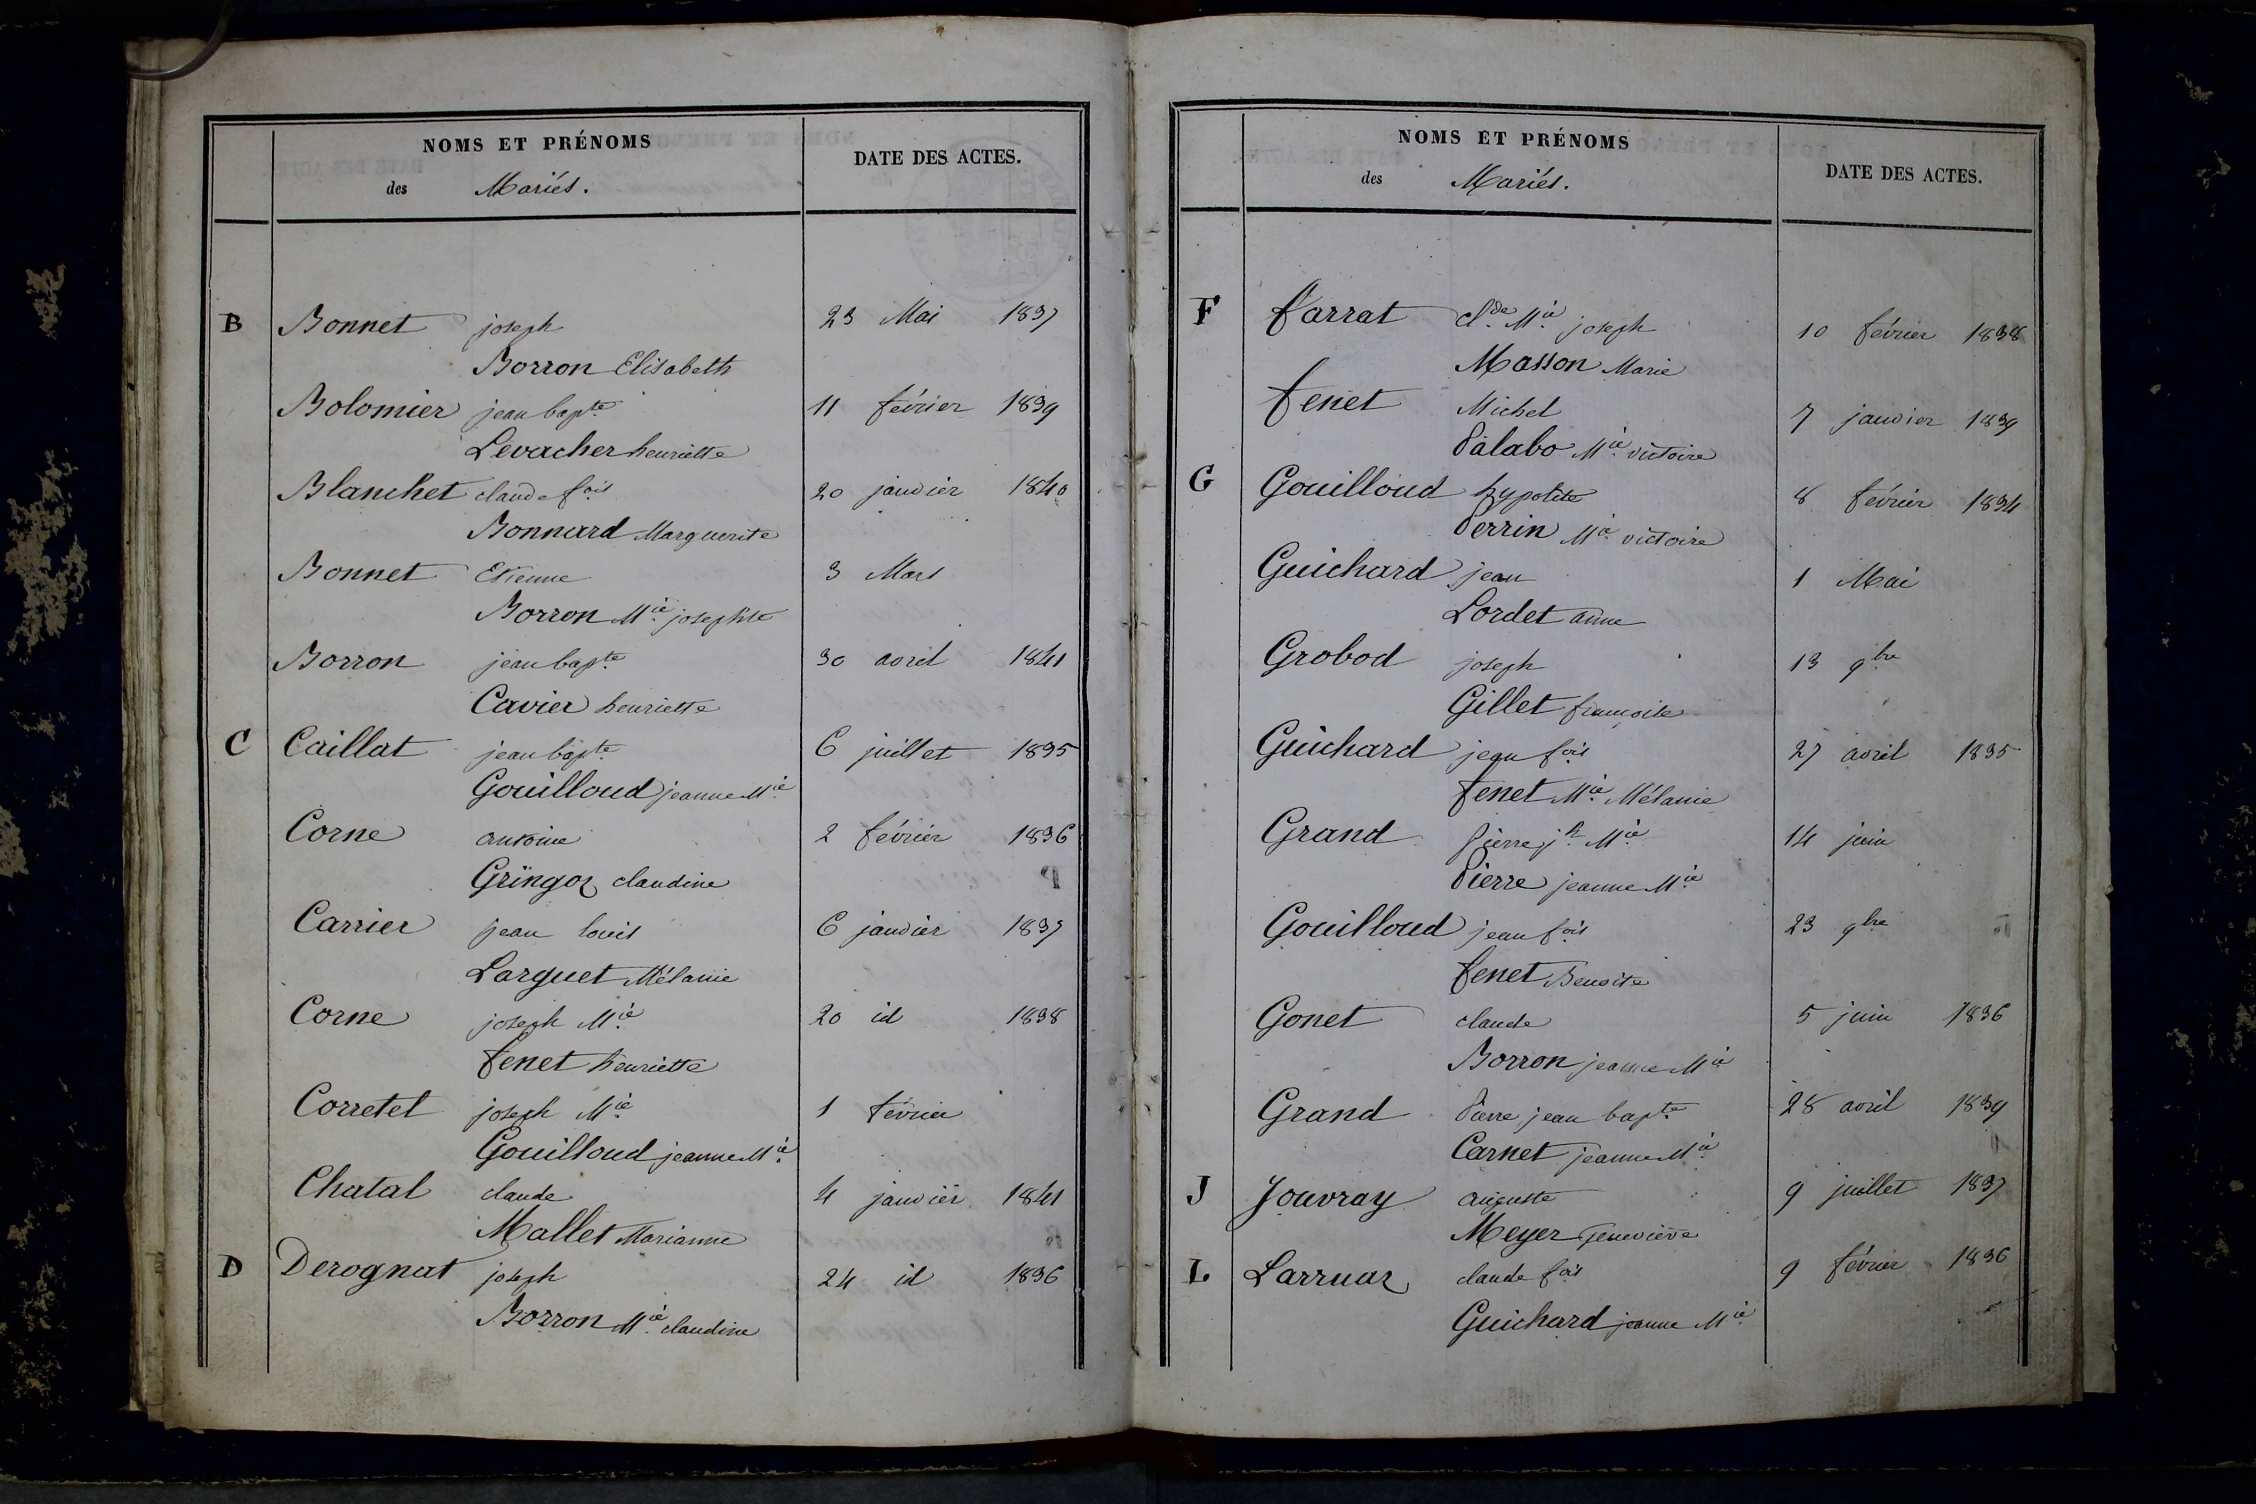 NOMS ET PRÉNOMS
des Mariés.
DATE DES ACTES.
B Bonnet joseph 23 Mai 1837
Borron Elisabeth
Bolomier jean bapte 11 février 1839
Levacher henriette
Blanchet claude fois 20 janvier 1840
Bonnard Marguerite
Bonnet Etienne 3 Mars
Borron Mie josephte
Borron jean bapte 30 avril 1841
Cavier henriette
C Caillat jean bapte 6 juillet 1835
Gouilloud jeanne Mie
Corne antoine 2 février 1836
Gringoz claudine
Carrier jean louis 6 janvier 1837
Larguet Mélanie
Corne joseph Mie 20 id 1838
fenet henriette
Corretel joseph Mie 1 février
Gouilloud jeanne Mie
Chatal claude 4 janvier 1841
Mallet Marianne
D Derognat joseph 24 id 1836
Borron Mie claudine
NOMS ET PRÉNOMS
des Mariés.
DATE DES ACTES.
F farrat clde Mie joseph 10 février 1838
Masson Marie
fenet Michel 7 janvier 1839
Palabo Mie victoire
G Gouilloud hypolite 8 février 1834
Perrin Mie victoire
Guichard jean 1 Mai
Lordet anne
Grobod joseph 13 9bre
Gillet françoise
Guichard jean fois 27 avril 1835
fenet Mie Mélanie
Grand Pierre jh Mie 14 juin
Pierre jeanne Mie
Gouilloud jean fois 23 9bre
fenet Benoite
Gonet claude 5 juin 1836
Borron jeanne Mie
Grand Pierre jean bapte 28 avril 1839
Carnet jeanne Mie
J Jouvray auguste 9 juillet 1837
Meyer Geneviève
L Larruaz claude fois 9 février 1836
Guichard jeanne Mie